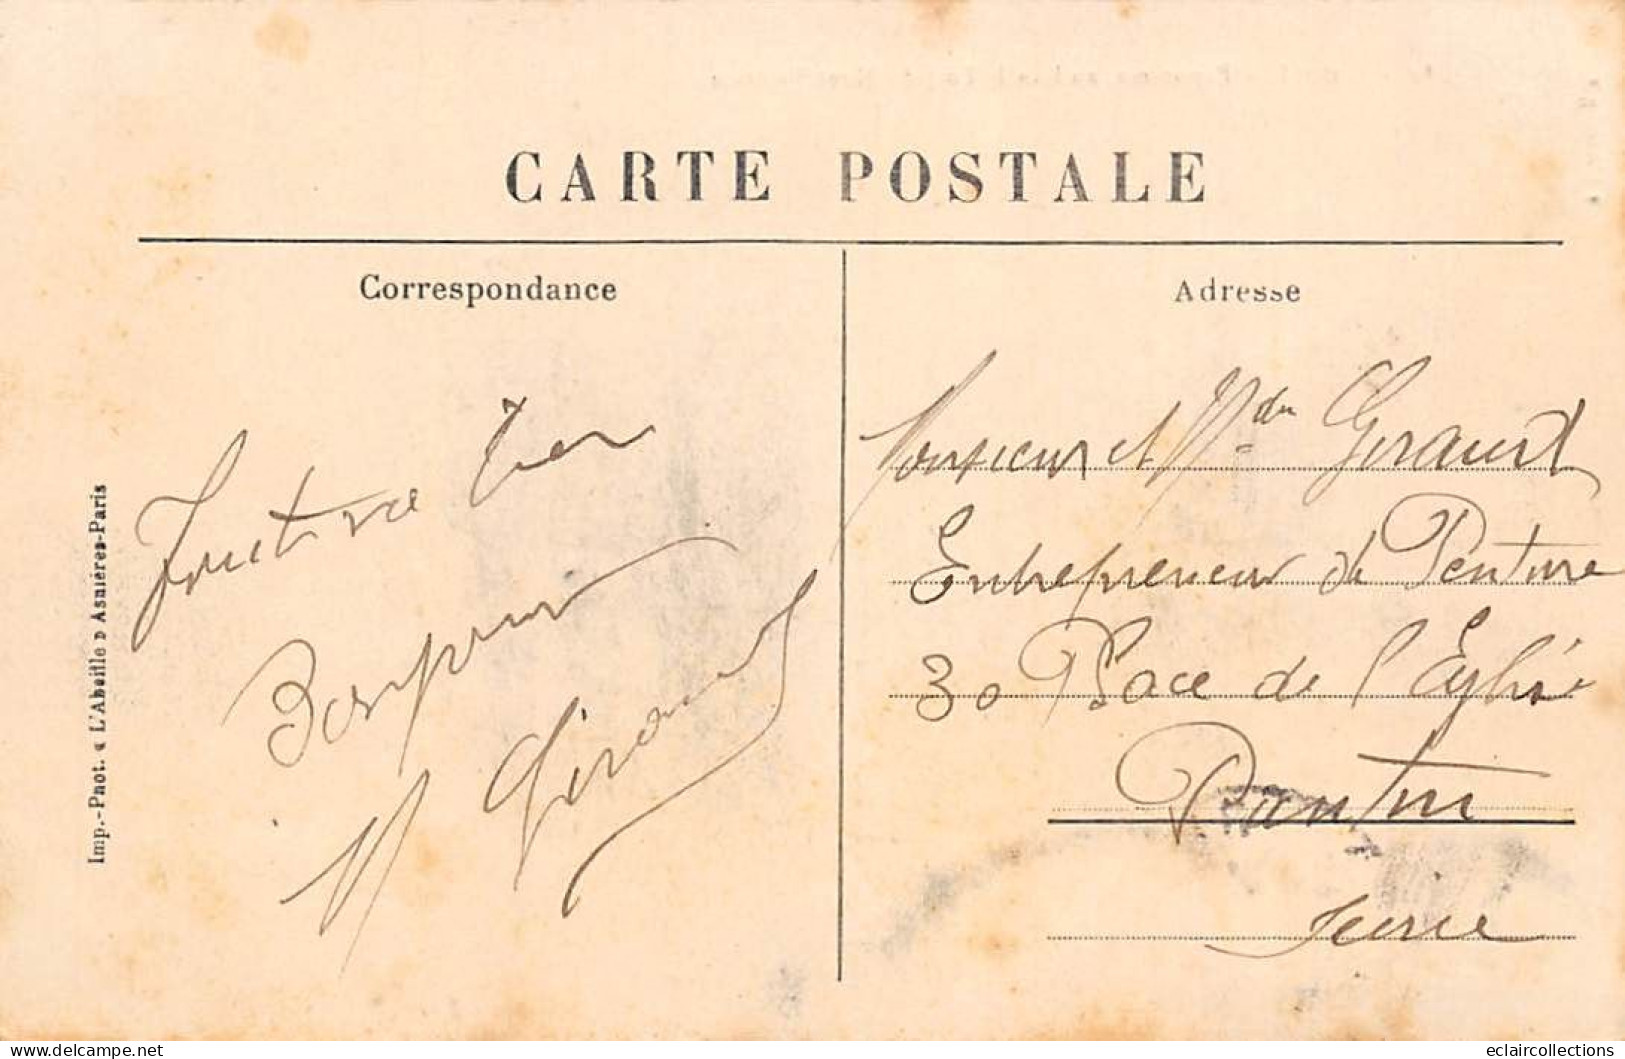 CARTE POSTALE
Correspondance
Adresse
Bonjour
M Giraud
Monsieur et Mdm Giraud
Entrepreneur de Penture
30 Place de l'Eglise
Pantin
Seine
Imp.-Phot. « L'Abeille » Asnières-Paris
delcampe.net
eclaircollections